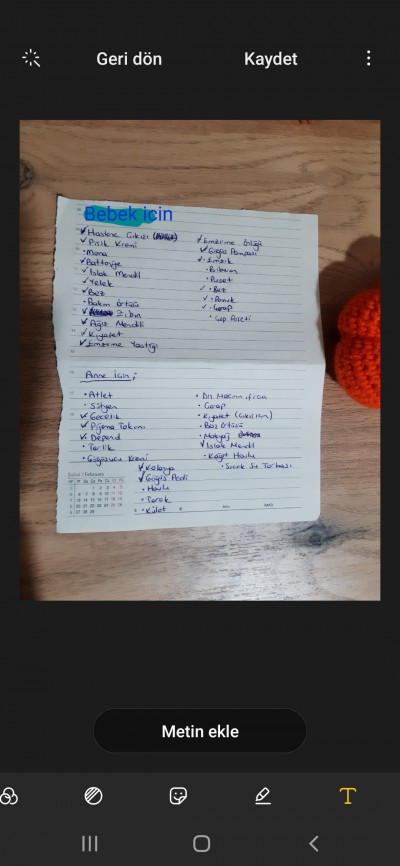 Geri dön
Kaydet
Bebek icin
Hastane Çıkışı
Pişik Kremi
Mama
Battaniye
Islak Mendil
Yelek
Bez
Bakım Örtüsü
Zıbın
Ağız Mendili
Kıyafet
Emzirme Yastığı
Emzirme Önlüğü
Göğüs Pompası
Emzik
Biberon
Puset
Bez
Pamuk
Çorap
Çöp Poşeti
Anne İçin ;
Atlet
Sütyen
Gecelik
Pijama Takımı
Depend
Terlik
Göğüsucu Kremi
Kolonya
Göğüs Pedi
Havlu
Tarak
Külot
Diş Macunu fırça
Çorap
Kıyafet (Çıkış için)
Baş Örtüsü
Makyaj
Islak Mendil
Kağıt Havlu
Sıcak Su Torbası
Metin ekle